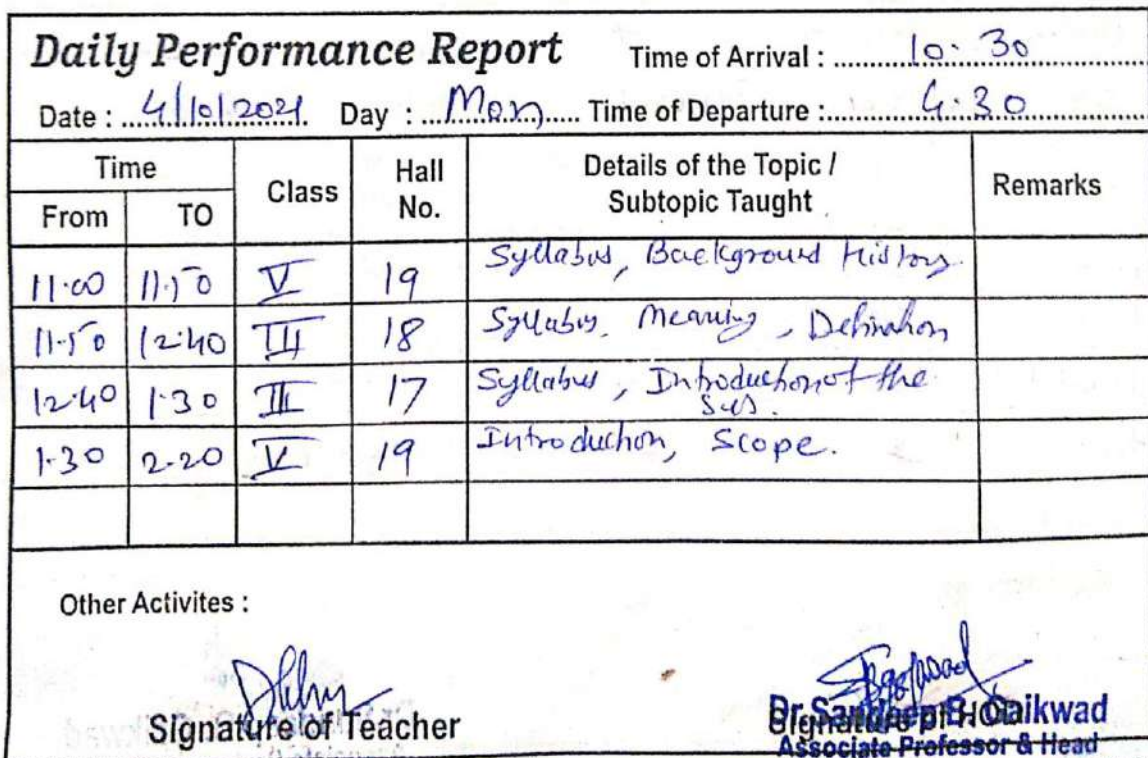 Daily Performance Report Time of Arrival : 10.30
Date : 4/10/2021 Day : Mon Time of Departure : 4.30
Time Class Hall No. Details of the Topic / Subtopic Taught Remarks
From TO
11.00 11.50 V 19 Syllabus, Background History
11.50 12.40 III 18 Syllabus, Meaning, Defination
12.40 1.30 III 17 Syllabus, Introduction of the Sub.
1.30 2.20 V 19 Introduction, Scope.
Other Activites :
Signature of Teacher Signature of HOD
Dr. Sandeep B. Gaikwad
Associate Professor & Head